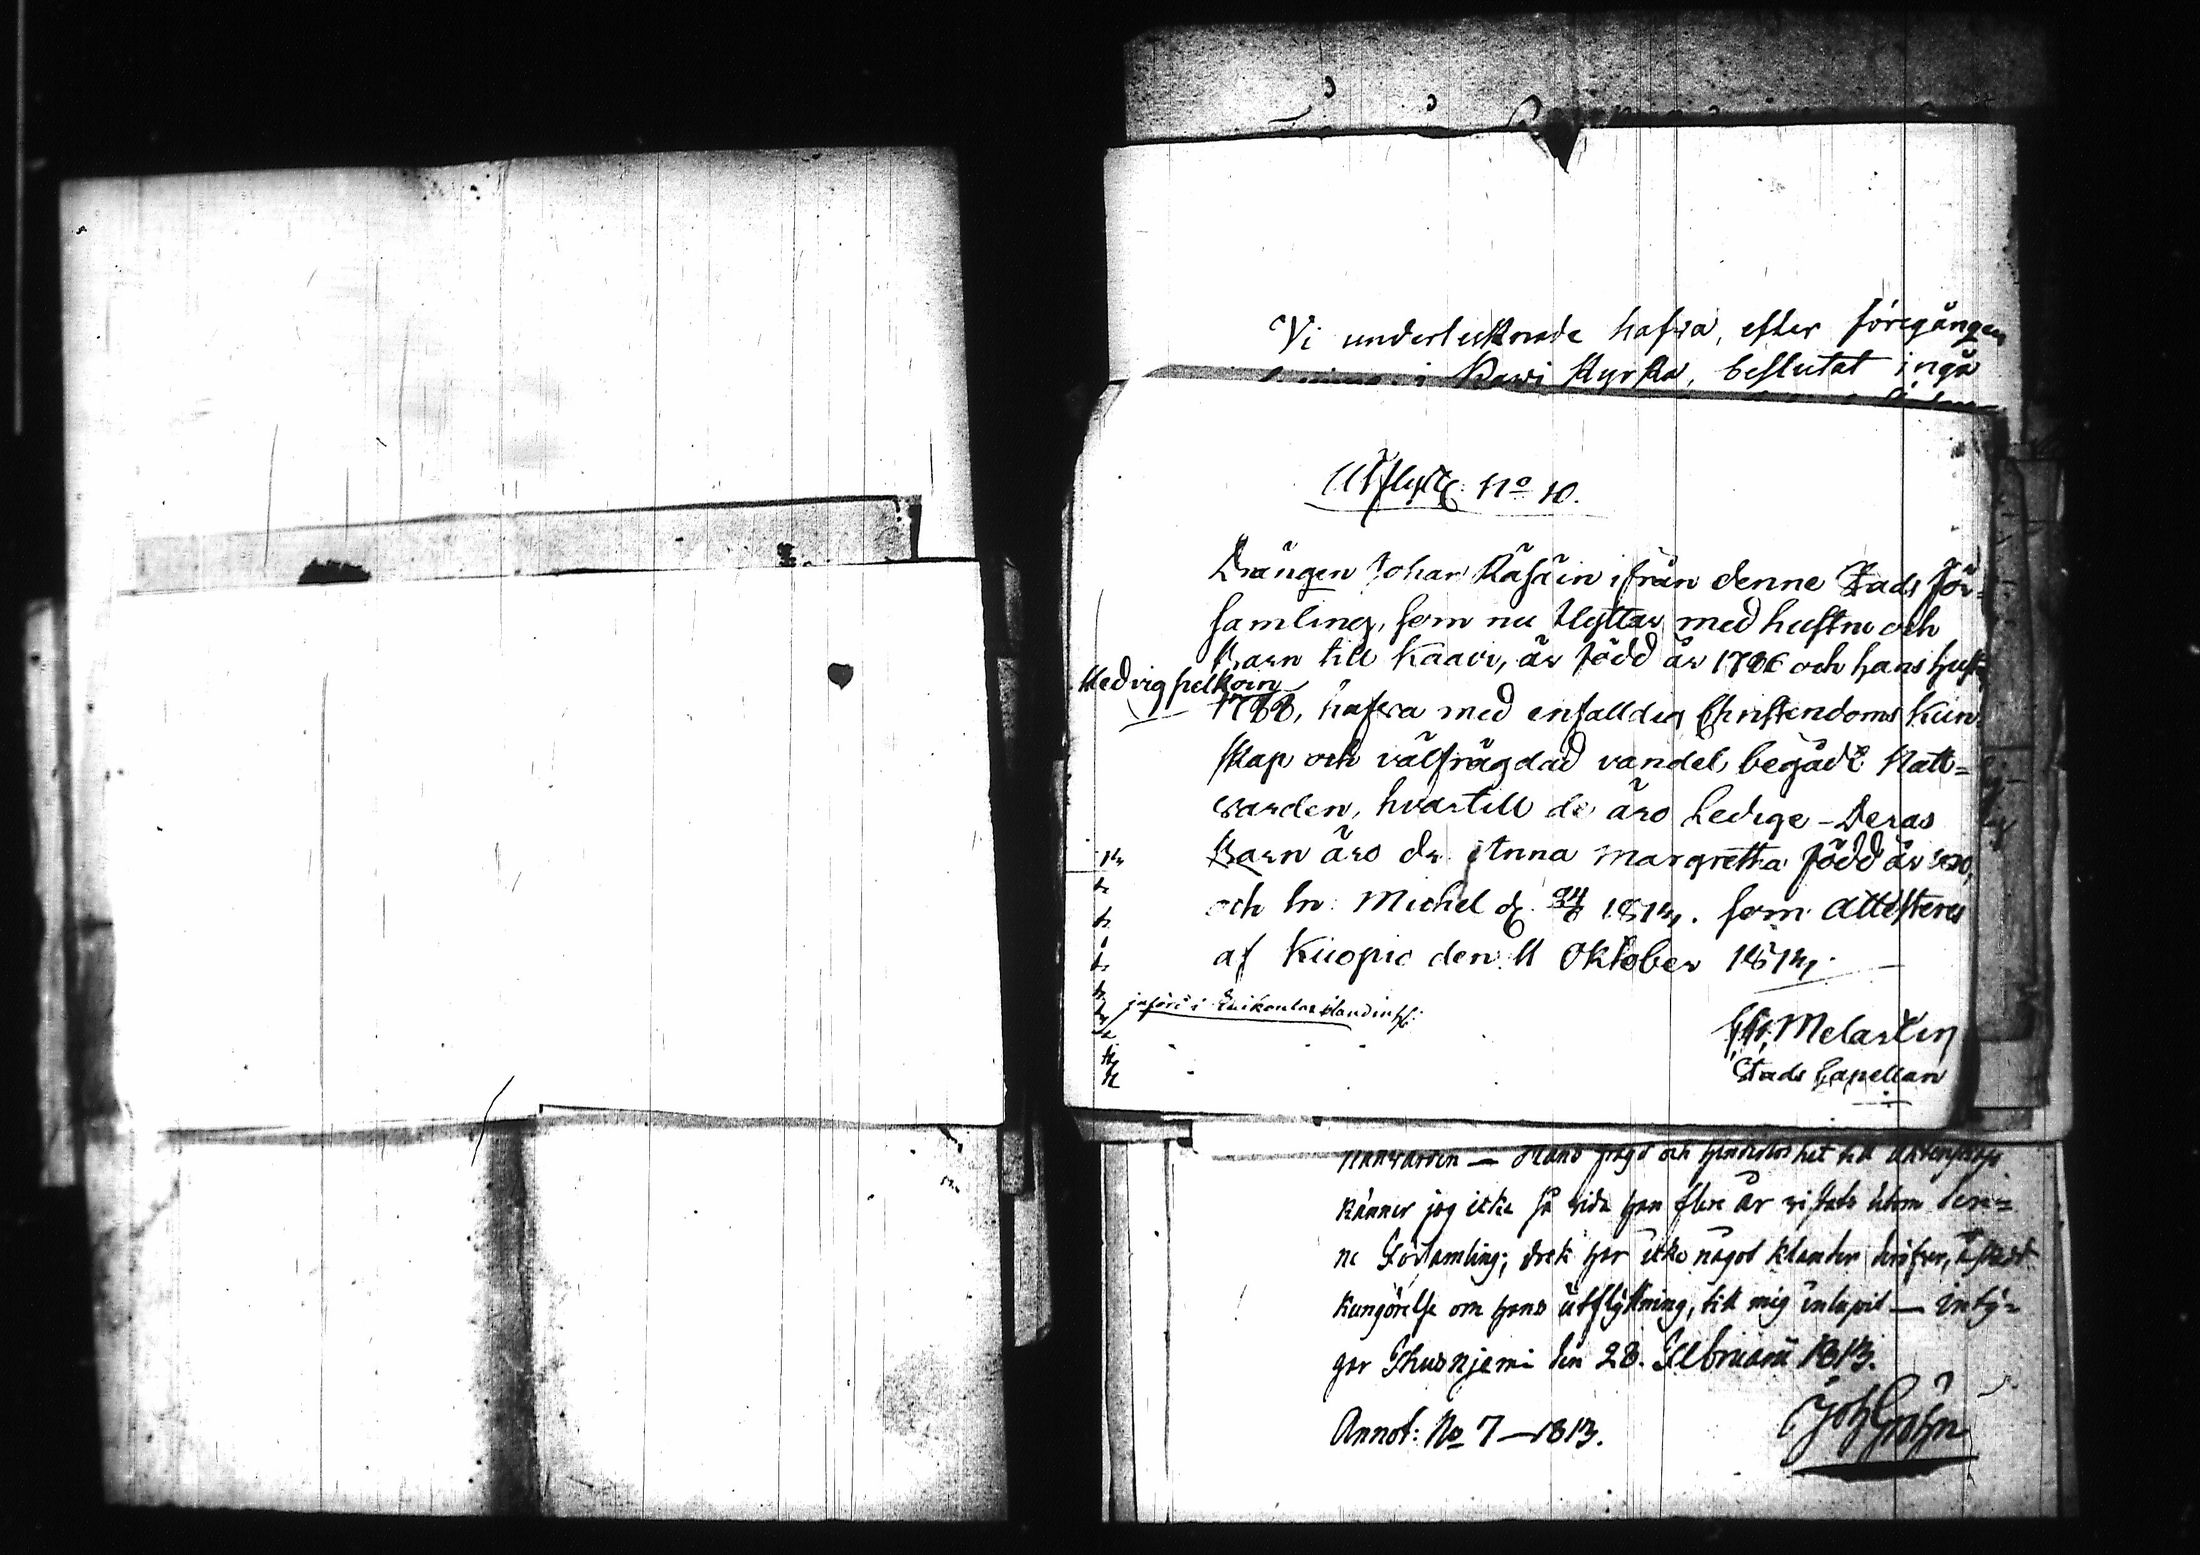 Vi underteknade hafva, efter föregången
i Kavi Kyrka, beslutat ingå
Utflytt: No 10.
Drängen Johan Räsäin ifrån denne Stads För-
samling, som nu flyttar med hustru och
Barn till Kaavi, är född år 1786 och hans hust
Hedvig Pelkoin
1788, hafva med enfalldig Christendoms Kun
skap och välfrägdad vandel begådt Natt-
varden, hvartill de äro Ledige - Deras
Barn äro dr. Anna Margretha född år 1810,
och Sn. Michel d. 24/6 1813. som attesteras
af Kuopio den 11 Oktober 1813.
införd i
Melartin
Stads Capellan
Nattvarden — Hans frägd och hinderlöshet till Äktenskap
känner jag icke så vida han flere år vistats utom den-
ne Församling; dock har icke något klander deröfver, å skedd
Kungörelse om hans utflyttning, till mig inlupit — inty-
gar Idensalmi den 28. Februarii 1813.
Annot: No 7 — 1813.
Joh Gröhn